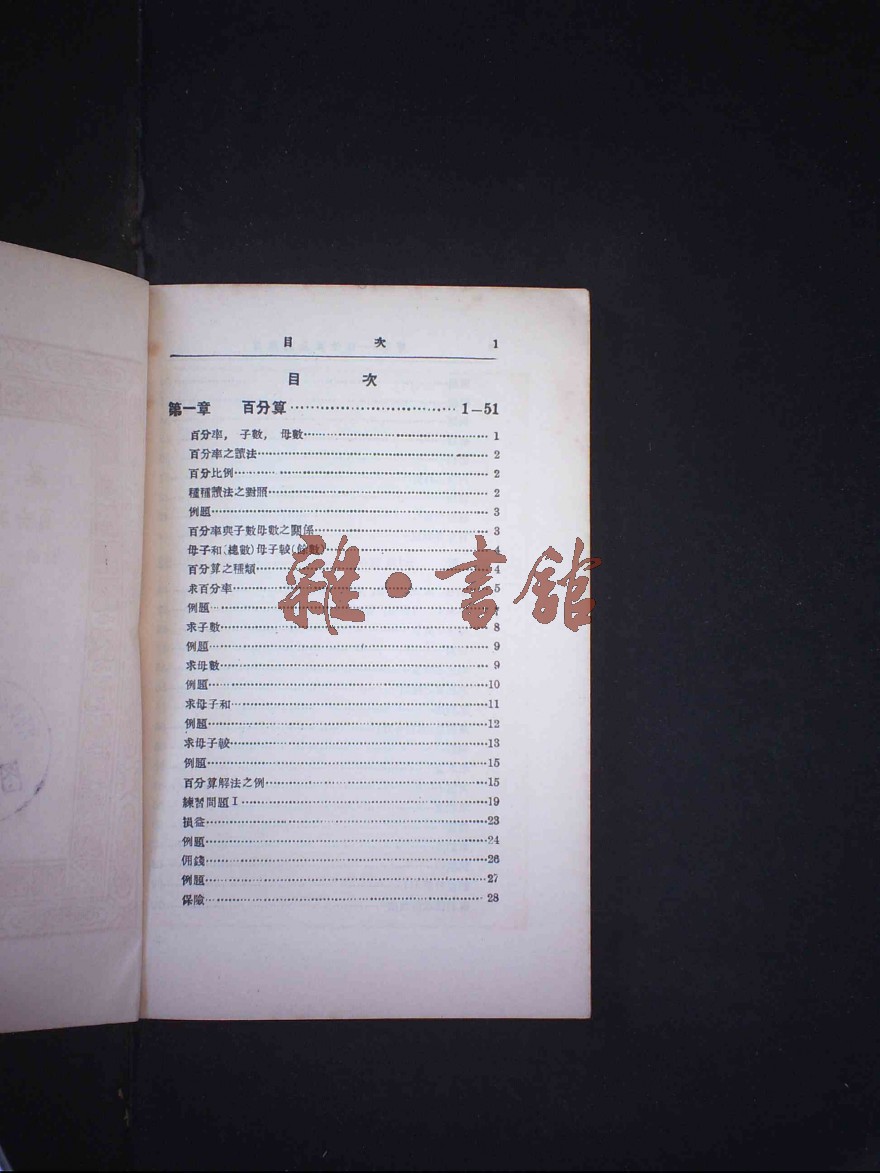 目 次 1
目 次
第一章 百分算………………………………1—51
百分率，子數，母數………………………………1
百分率之讀法………………………………2
百分比例………………………………2
種種讀法之對照………………………………2
例題………………………………3
百分率與子數母數之關係………………………………3
母子和(總數)母子較(餘數)………………………………4
百分算之種類………………………………4
求百分率………………………………5
例題………………………………
求子數………………………………8
例題………………………………9
求母數………………………………9
例題………………………………10
求母子和………………………………11
例題………………………………12
求母子較………………………………13
例題………………………………15
百分算解法之例………………………………15
練習問題I………………………………19
損益………………………………23
例題………………………………24
佣錢………………………………26
例題………………………………27
保險………………………………28
雜·書館